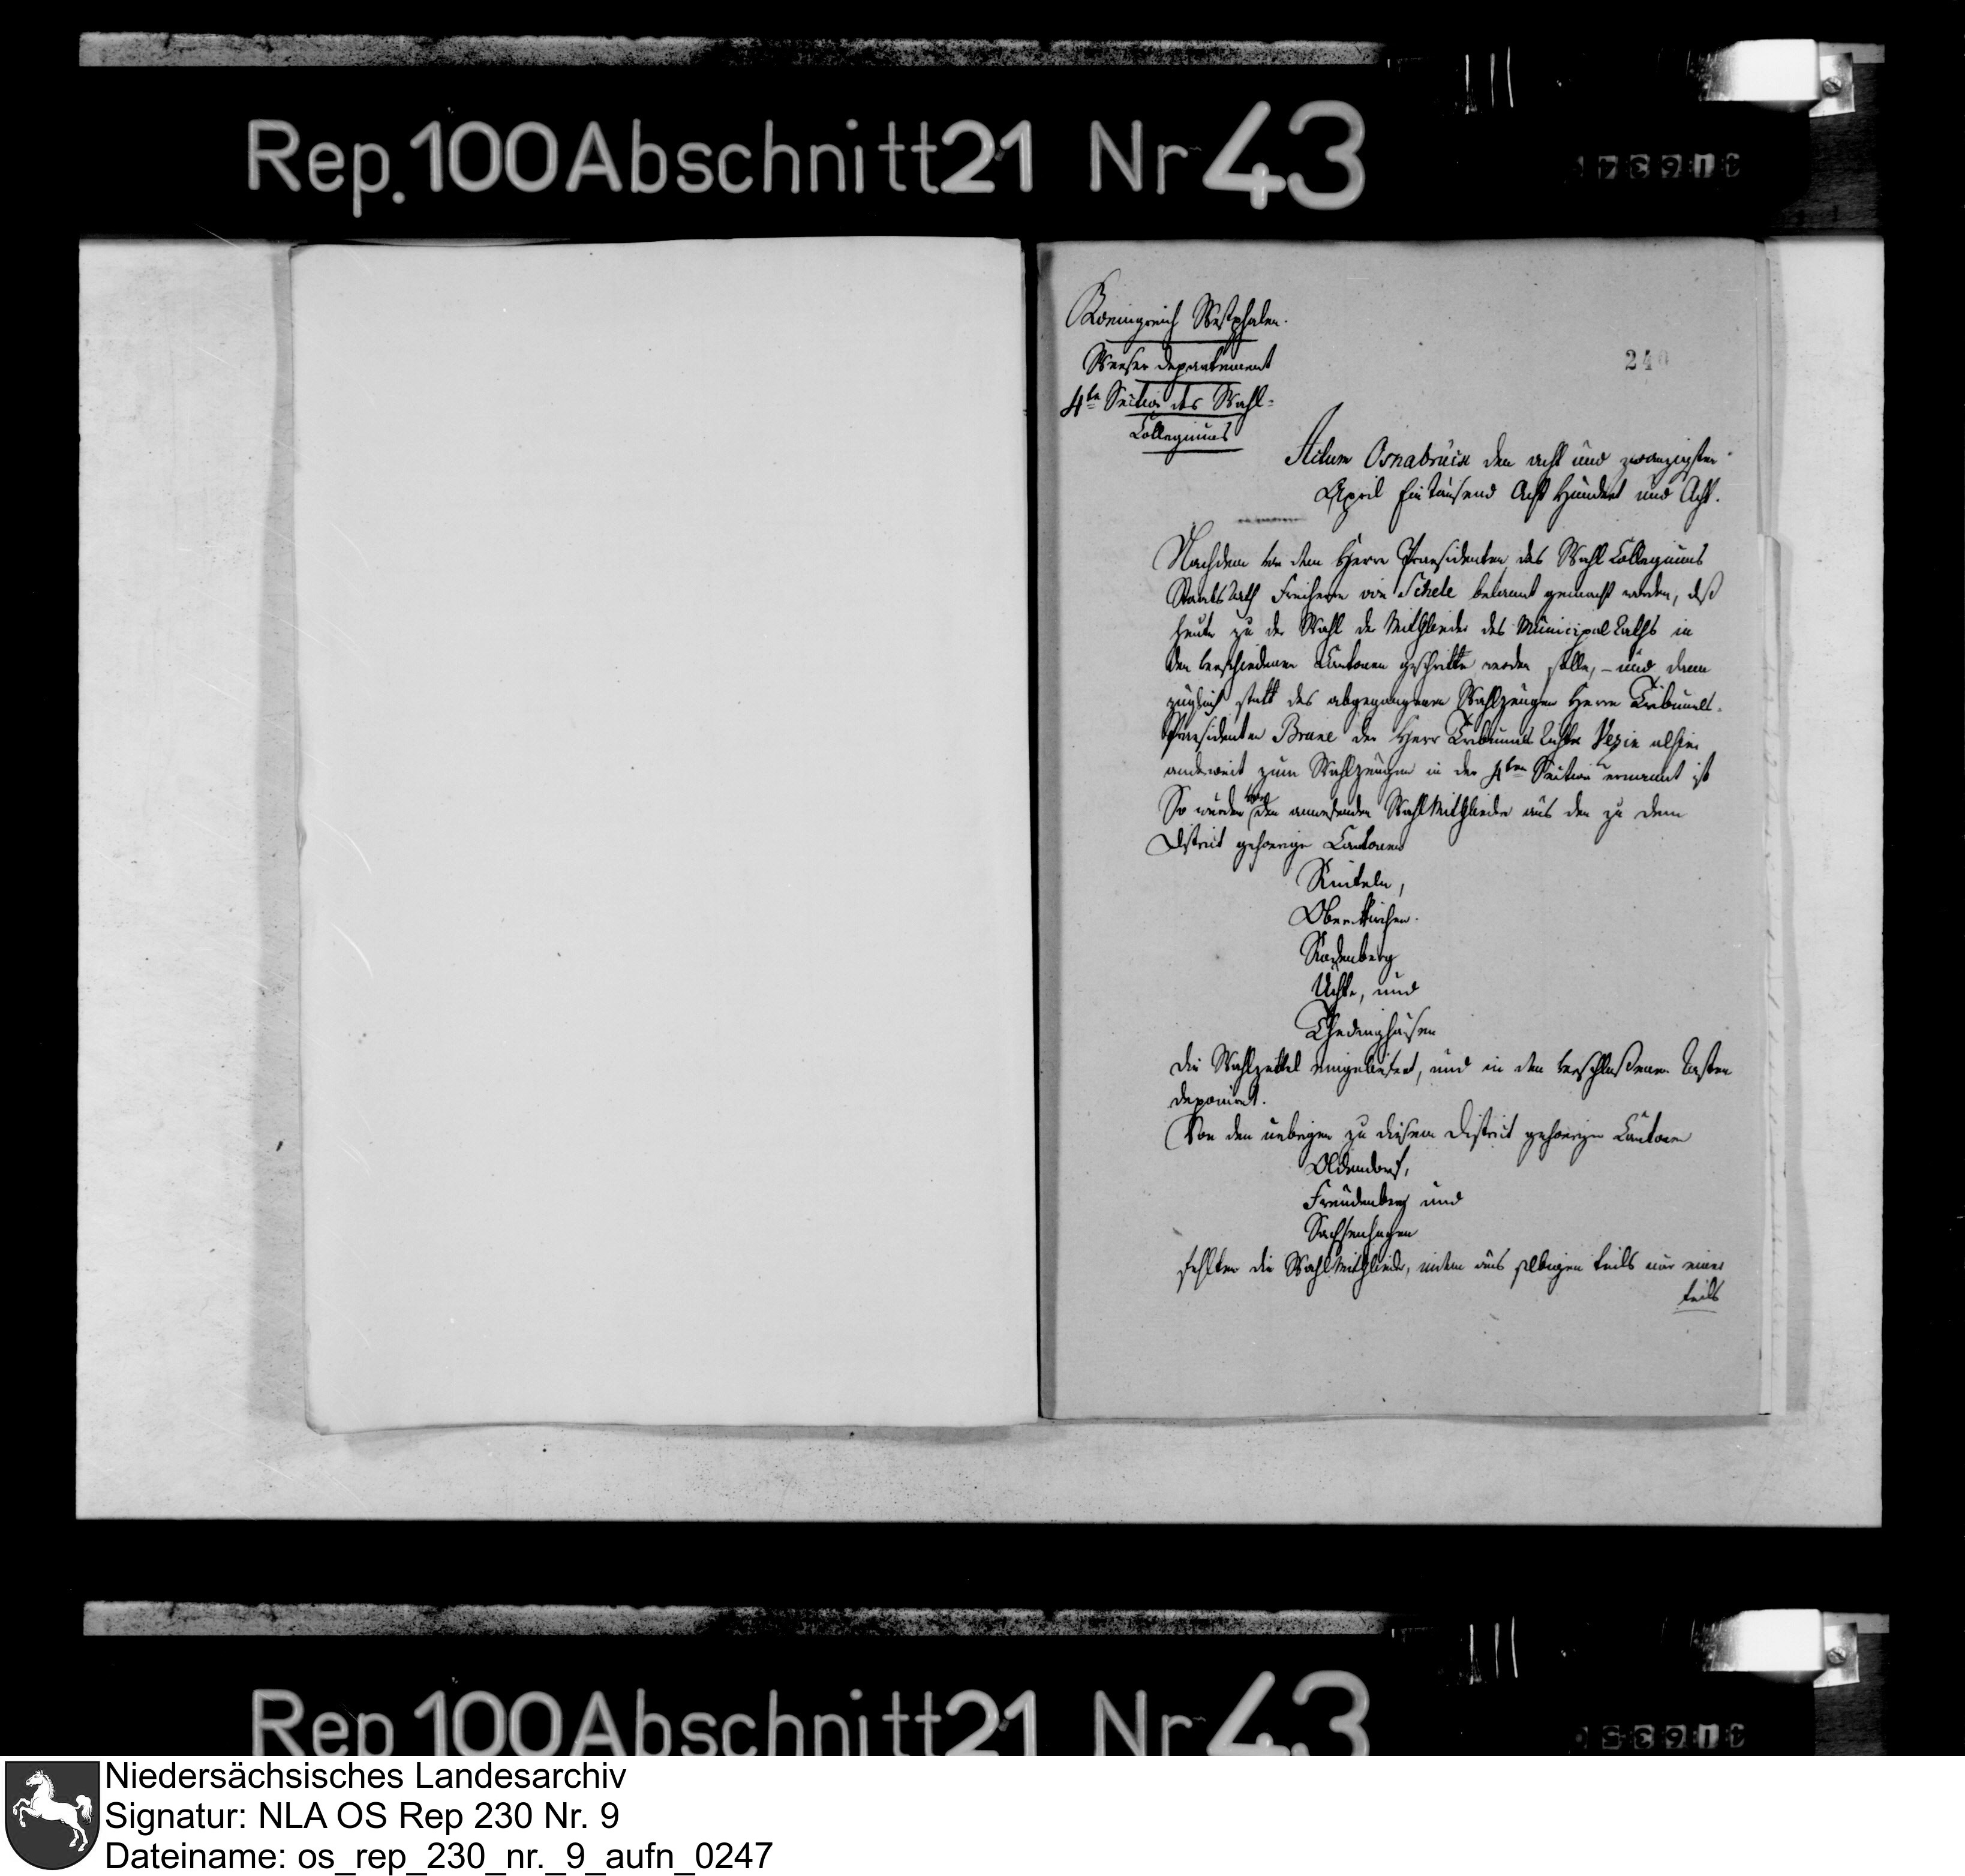 Rep. 100 Abschnitt 21 Nr 43
Koenigreich Westphalen.
Weeser Departement
4te Section des Wahl-
Collegiums
240
Actum Osnabrück den acht und zwanzigsten
April Ein tausend Acht Hundert und Acht.
Nachdem von dem Herrn Praesidenten des Wahl Collegiums
StaatsRath Freiherrn von Schele bekannt gemacht worden, daß
heute zu der Wahl der Mitglieder des MunicipalRaths in
den verschiedenen Cantonen geschritten werden solle, – und dann
zugleich statt des abgegangenen Wahlzeugen Herrn Tribunals
Praesidenten Brune der Herr Tribunals Richter Vezin
anderweit zum Wahlzeugen in der 4ten Section ernannt ist
So wurden von den anwesenden WahlMitglieder aus den zu dem
District gehoerige Cantonen
Rinteln,
Obernkirchen.
Rodenberg
Uchte, und
Thedinghausen
die Wahlzettel eingeliefert, und in den verschloßenen Kasten
deponirt.
Von den uebrigen zu diesem District gehoerigen Cantonen
Oldendorf,
Freudenberg und
Sachsenhagen
fehlten die WahlMitglieder, indem aus selbigen teils nur einer
teils
Rep 100 Abschnitt 21 Nr 43
Niedersächsisches Landesarchiv
Signatur: NLA OS Rep 230 Nr. 9
Dateiname: os_rep_230_nr._9_aufn_0247